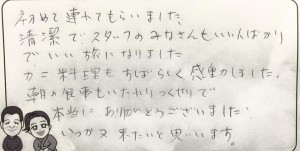 初めて連れてもらいました、
清潔でスタッフのみなさんもいい人ばかり
でいい旅になりました
カニ料理もすばらしく感動しました。
朝の食事もいたれりつくせりで
本当にありがとうございました
いつか又来たいと思います。